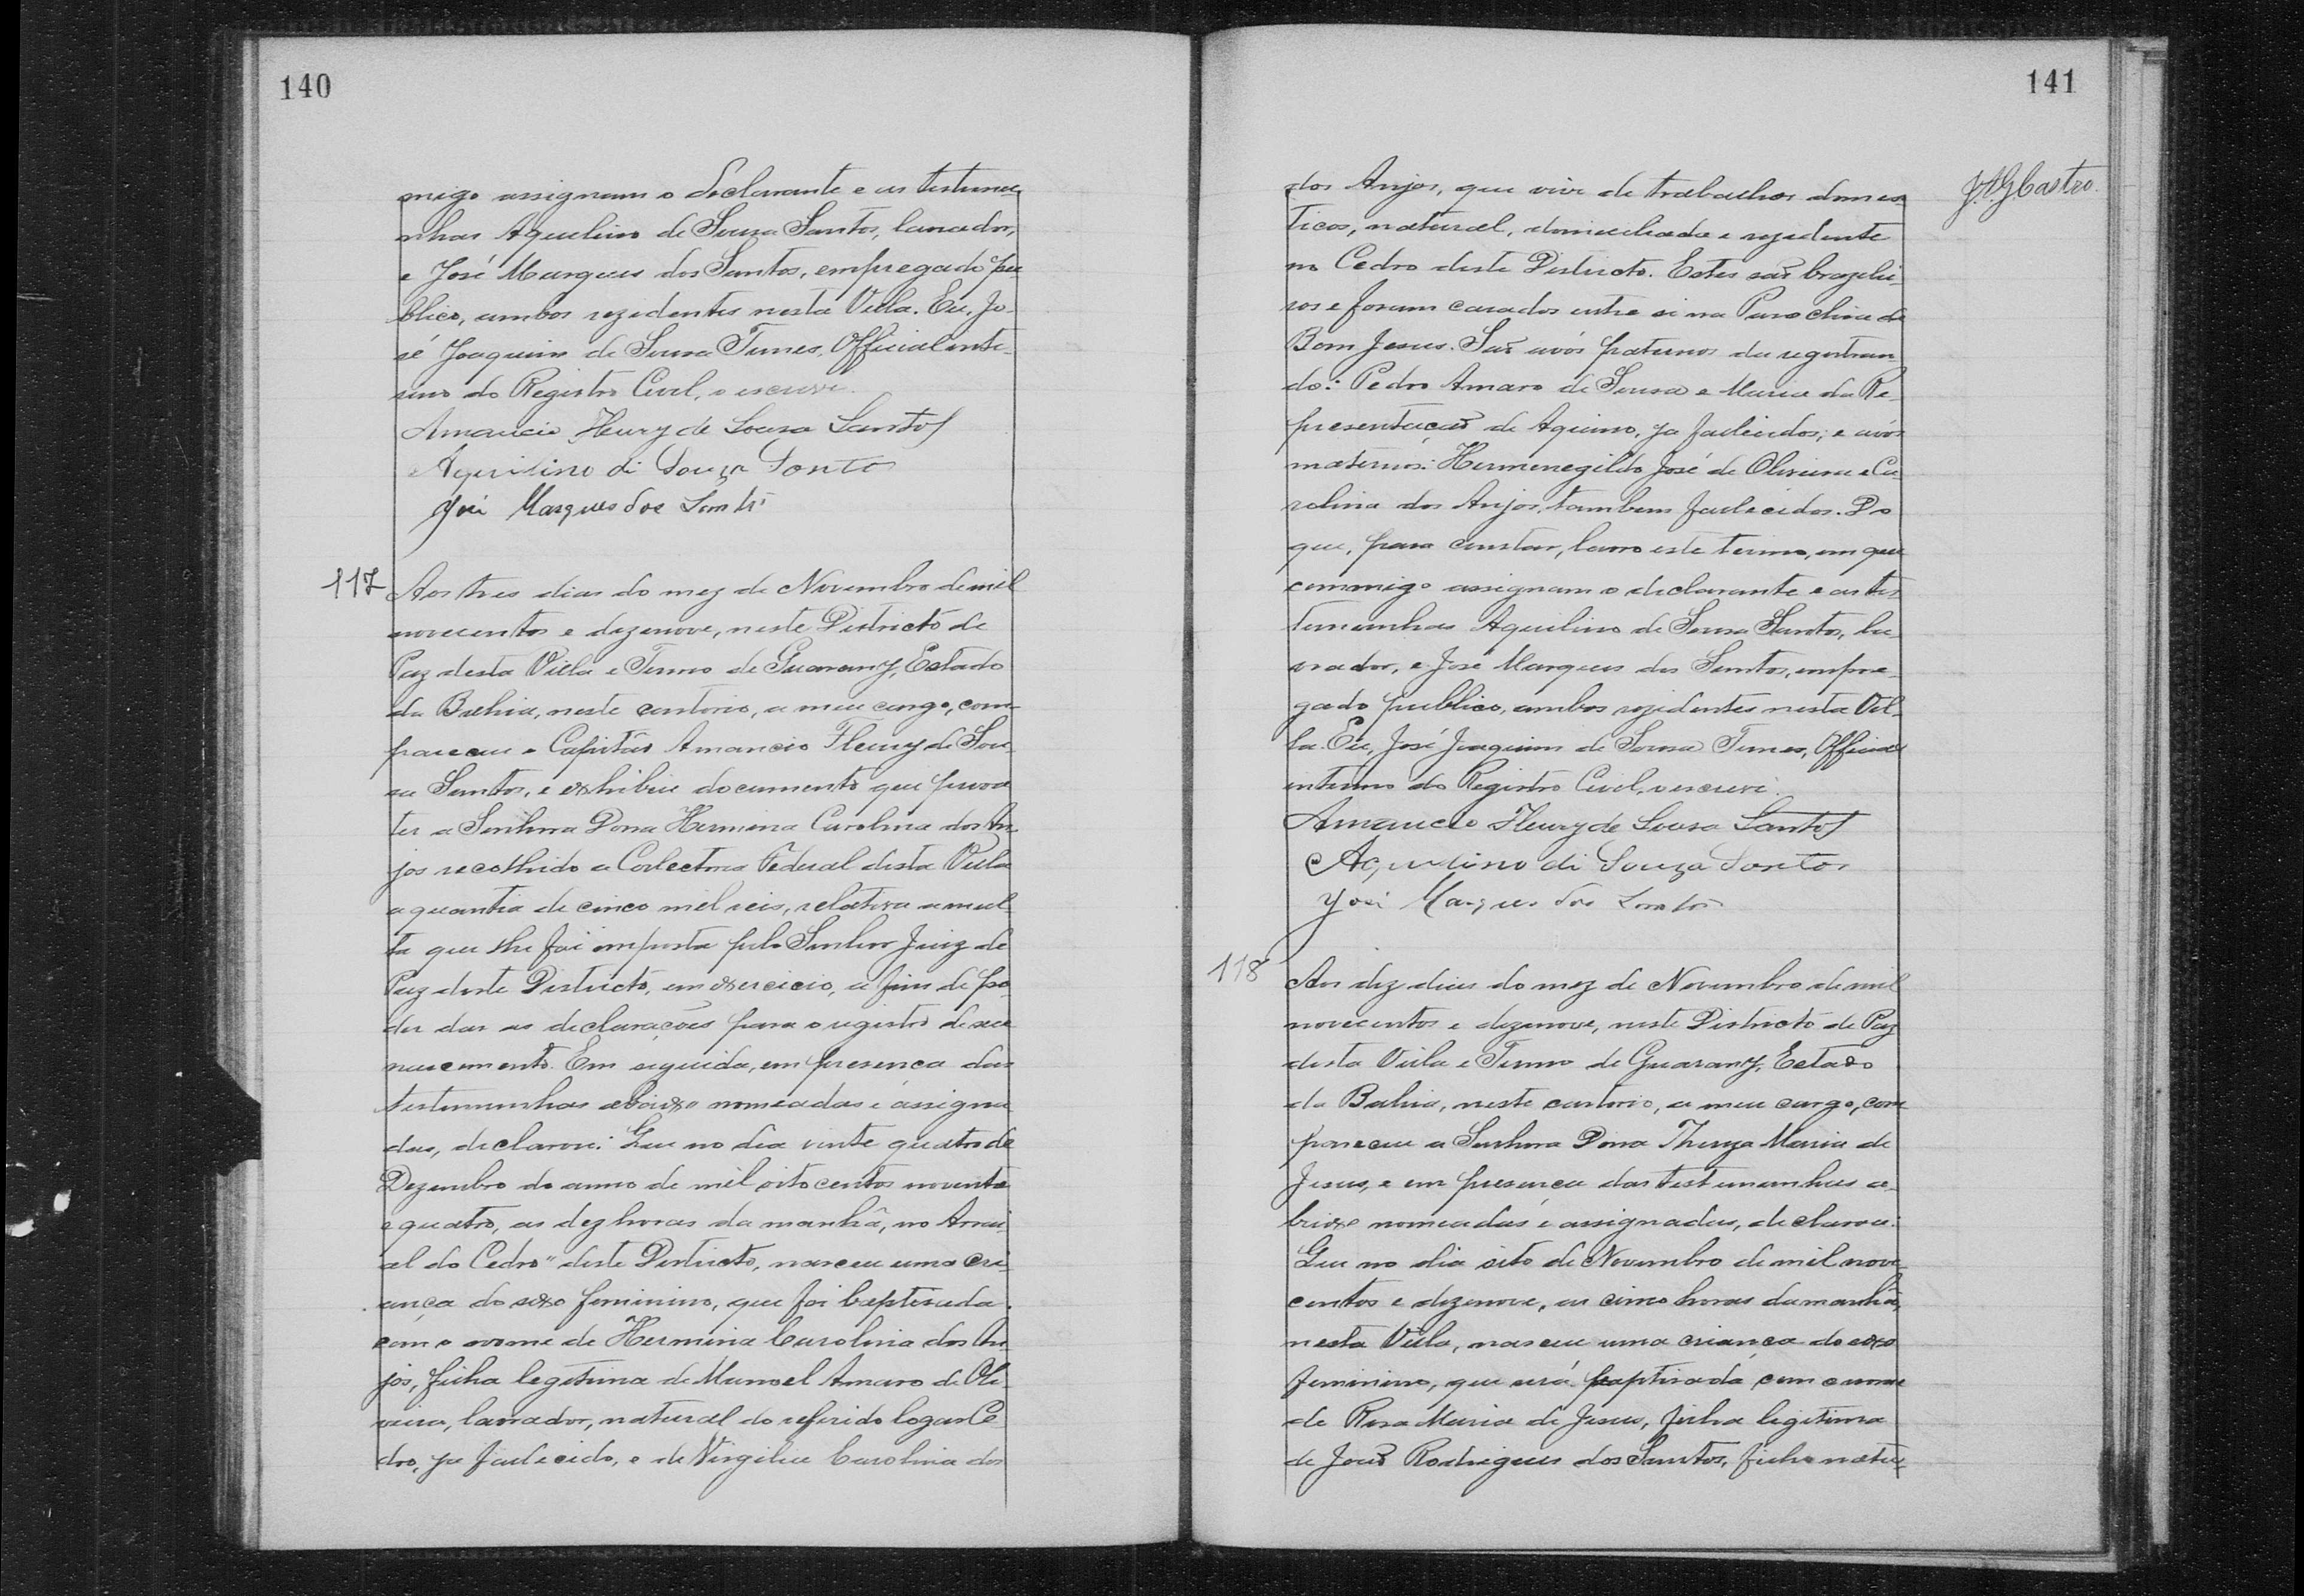 140
migo assignam o declarante e as testemu
nhas Aquelino de Sousa Santos, lavrador,
e José Marques dos Santos, empregado pu
blico, ambos rezidentes nesta Villa. Eu, Jo-
sé Joaquim de Sousa Tunes, Official inte-
rino do Registro Civil, o escrevi.
Amancio Fleury de Sousa Santos
Aquilino di Souza Santos
José Marques dos Santos
117
Aos tres dias do mez de Novembro de mil
novecentos e dezenove, neste Districto de
Paz desta Villa e Termo de Guarany, Estado
da Bahia, neste cartorio, a meu cargo, com-
pareceu o Capitão Amancio Fleury de Sou-
sa Santos, e exhibiu documento que prova
ter a Senhora Dona Hermina Carolina dos An-
jos recolhido a Collectoria Federal desta Villa
a quantia de cinco mil reis, relativa a mul-
ta que lhe foi imposta pelo Senhor Juiz de
Paz deste Districto, em exercicio, a fim de po-
der dar as declarações para o registro de seu
nascimento. Em seguida, em presença das
testemunhas abaixo nomeadas e assigna
das, declarou: Que no dia vinte quatro de
Dezembro do anno de mil oitocentos noventa
e quatro, as dez horas da manhã, no Arrai-
al do Cedro" deste Districto, nasceu uma cri-
ança do sexo feminino, que foi baptisada
com o nome de Hermina Carolina dos An-
jos, filha legitima de Manoel Amaro de Oli-
veira, lavrador, natural do referido logar Ce-
dro, ja fallecido, e de Virgilia Carolina dos
141
dos Anjos, que vive de trabalhos domes-
ticos, natural, domiciliada e rezidente
no Cedro deste Districto. Estes são brazilei-
ros e foram casados entre si na Parochia de
Bom Jesus. São avós paternos da registran-
do: Pedro Amaro de Sousa e Maria da Re-
presentação de Aquino, ja fallecidos; e avós
maternos: Hermenegildo José de Oliveira e Ca-
rolina dos Anjos, tambem fallecidos. Do
que, para constar, lavro este termo, em que
commigo assignam o declarante e as tes
temunhas Aquilino de Sousa Santos, la-
vrador, e José Marques dos Santos, empre-
gado publico, ambos rezidentes nesta Vil-
la. Eu, José Joaquim de Sousa Tunes, Official
interino do Registro Civil, o escrevi.
Amancio Fleury de Sousa Santos
Aquilino di Souza Santos
José Marques dos Santos
J.A.G. Castro.
118
Aos dez dias do mez de Novembro de mil
novecentos e dezenove, neste Districto de Paz
desta Villa e Termo de Guarany, Estado
da Bahia, neste cartorio, a meu cargo, com
pareceu a Senhora Dona Thereza Maria de
Jesus, e em presença das testemunhas a-
baixo nomeadas e assignadas, declarou:
Que no dia oito de Novembro de mil nove-
centos e dezenove, as cinco horas da manhã,
nesta Villa, nasceu uma criança do sexo
feminino, que será baptisada com o nome
de Rosa Maria de Jesus, filha legitima
de João Rodrigues dos Santos, filho natu-